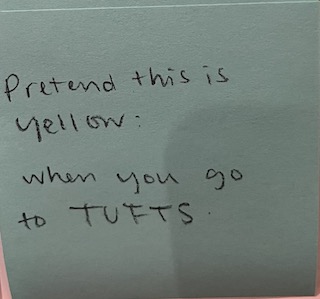 Pretend this is
yellow:
when you go
to TUFTS.